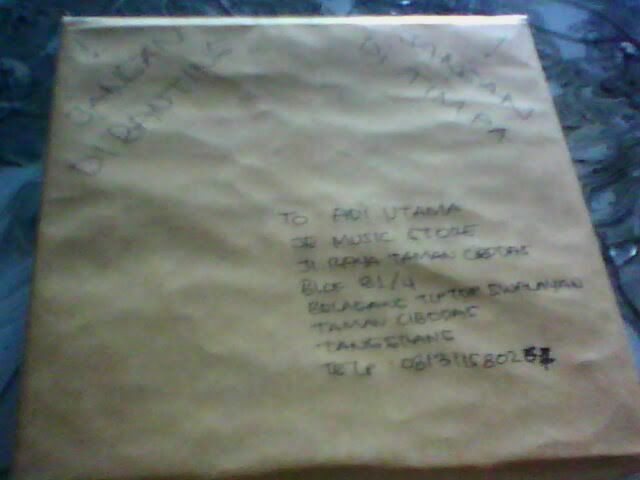 ! JANGAN
DI BANTING
JANGAN !
DI TIMPA
TO ADI UTAMA
SB MUSIC STORE
JL RAYA TAMAN CIBODAS
BLOK B1/4
BELAKANG TIPTOP SWALAYAN
TAMAN CIBODAS
TANGERANG
TELP